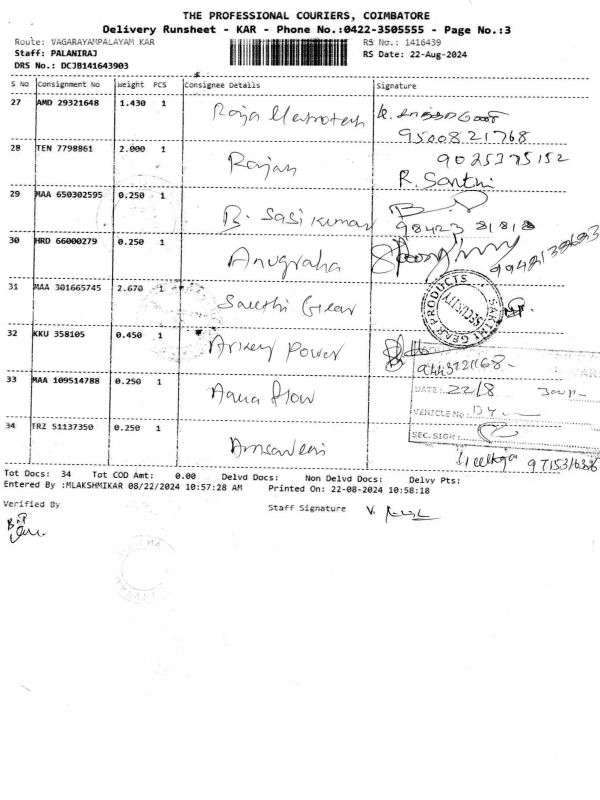 THE PROFESSIONAL COURIERS, COIMBATORE
Delivery Runsheet - KAR - Phone No.:0422-3505555 - Page No.:3
Route: VAGARAYAMPALAYAM KAR RS No.: 1416439
Staff: PALANIRAJ RS Date: 22-Aug-2024
DRS No.: DCJB141643903
S No Consignment No Weight PCS Consignee Details Signature
27 AMD 29321648 1.430 1 Raja
9500821768
28 TEN 7798861 2.000 1 Rajan 9025375152
R. Santhi
29 MAA 650302595 0.250 1 B. Sasikumar
98423 81818
30 HRD 66000279 0.250 1 Anugraha
31 MAA 301665745 2.670 1 Sakthi Gear
SAKTHI GEAR PRODUCTS
SECURITY
32 KKU 358105 0.450 1 Power
33 MAA 109514788 0.250 1 Aqua flow
DATE: 22/8
VEHICLE No:
34 TRZ 51137350 0.250 1
SEC. SIGN:
Tot Docs: 34 Tot COD Amt: 0.00 Delvd Docs: Non Delvd Docs: Delvy Pts:
Entered By :MLAKSHMIKAR 08/22/2024 10:57:28 AM Printed On: 22-08-2024 10:58:18
Verified By Staff Signature